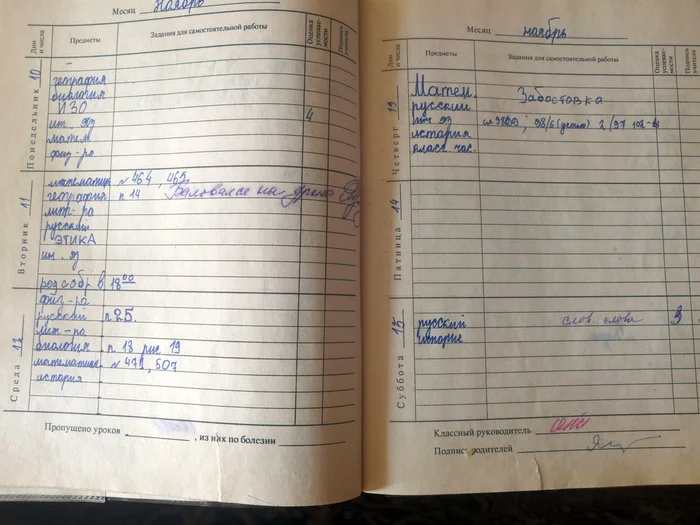 Месяц ноябрь
Дни и числа
Предметы
Задания для самостоятельной работы
Оценка успеваемости
Подпись учителя
Понедельник 10
–
география
биология
ИЗО
ин. яз 4
матем
физ-ра
Вторник 11
математика № 464, 465
география п 14 Баловался на уроке
лит-ра
русский
ЭТИКА
ин. яз
род собр в 18 00
Среда 12
физ-ра
русский п 25.
лит-ра
биология п 18 рис 19
математика № 471, 507
история
Пропущено уроков , из них по болезни
Месяц ноябрь
Дни и числа
Предметы
Задания для самостоятельной работы
Оценка успеваемости
Подпись учителя
Четверг 13
Матем. Забостовка
русский
ин. яз 98/6 (устно) 2/97
история
класс. час.
Пятница 14
Суббота 15
русский слов. слова 3
история
Классный руководитель
Подпись родителей